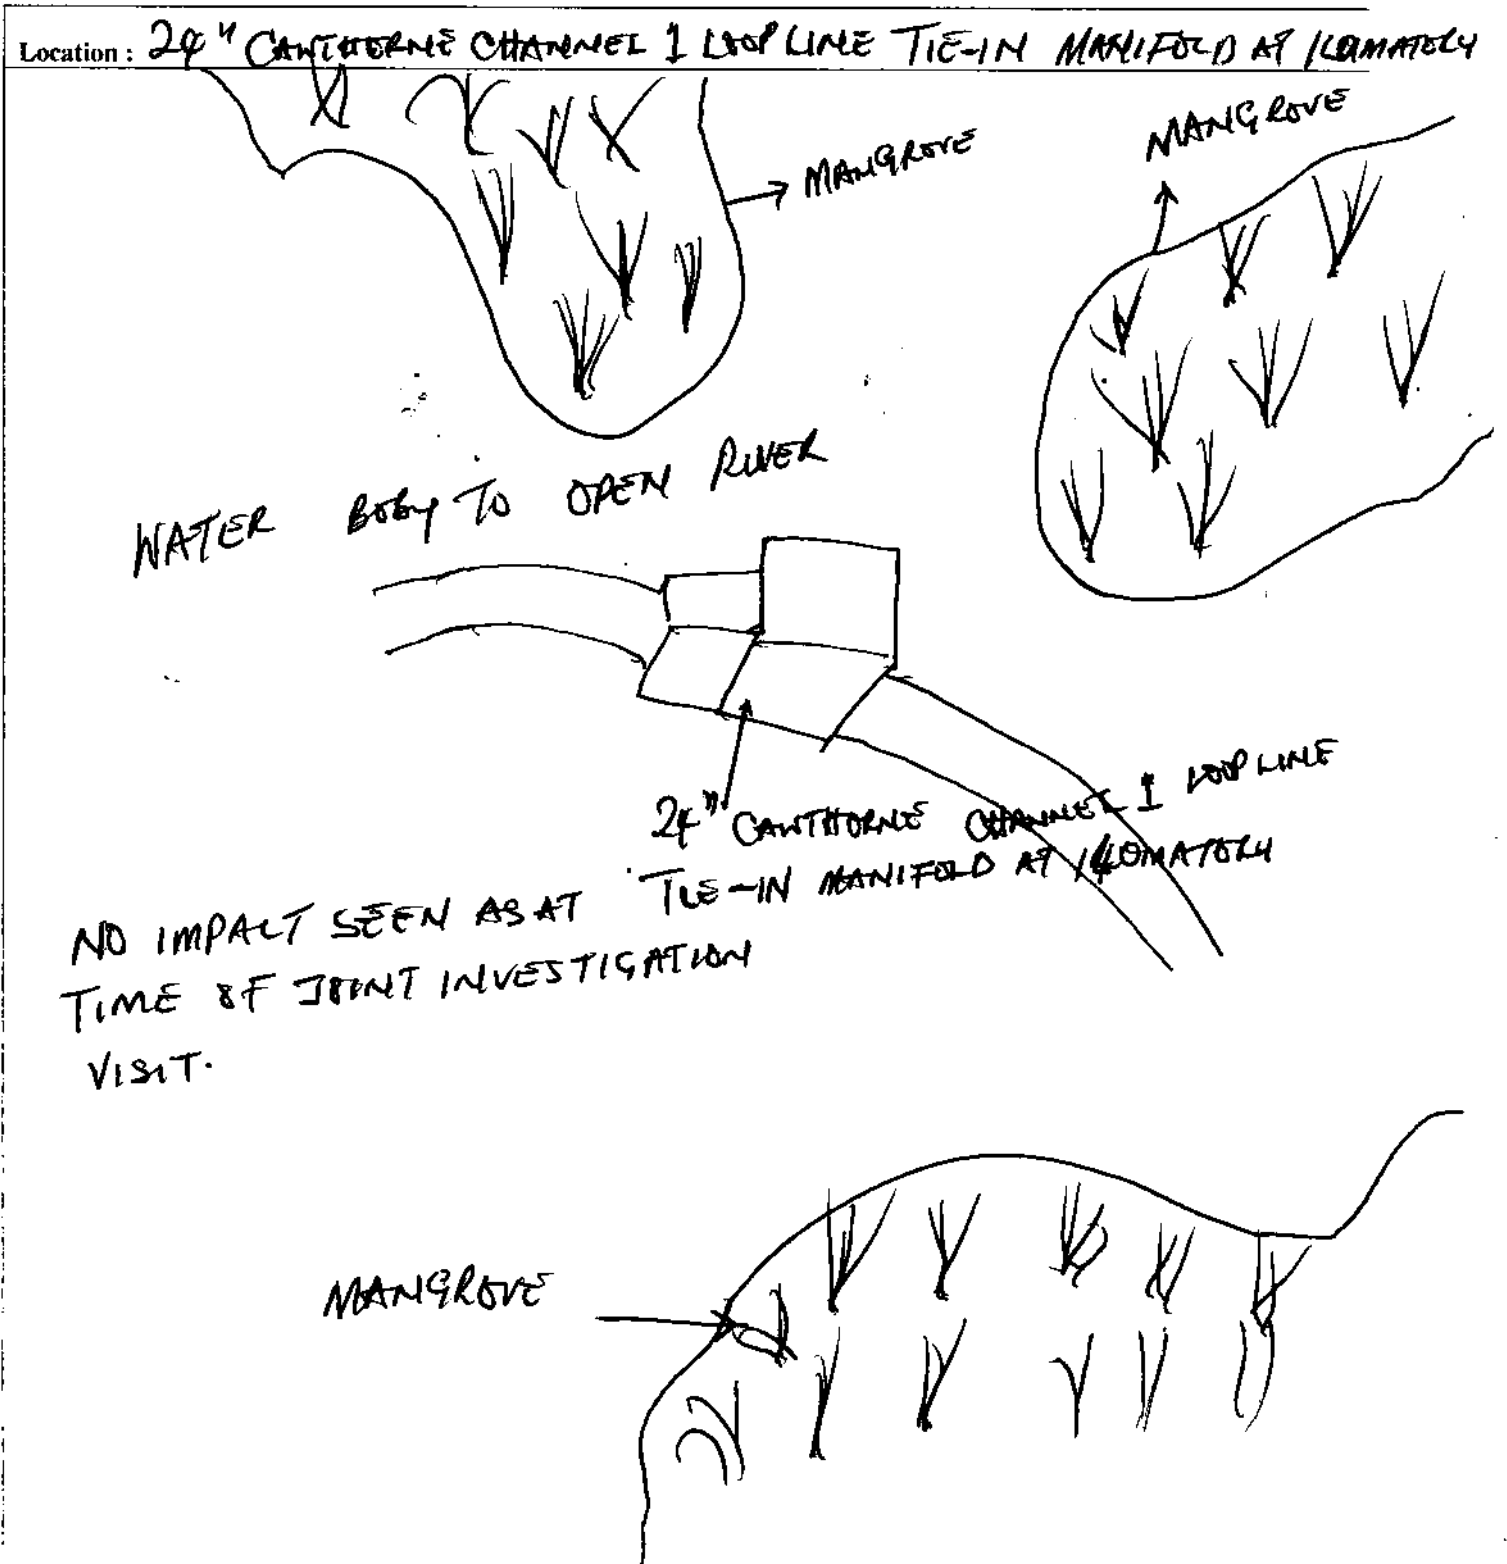 Location : 24" CAWTHORNE CHANNEL 1 LOOP LINE TIE-IN MANIFOLD AT
MANGROVE
MANGROVE
WATER BODY TO OPEN RIVER
24" CAWTHORNE CHANNEL 1 LOOP LINE
TIE-IN MANIFOLD AT
NO IMPACT SEEN AS AT
TIME OF JOINT INVESTIGATION
VISIT.
MANGROVE